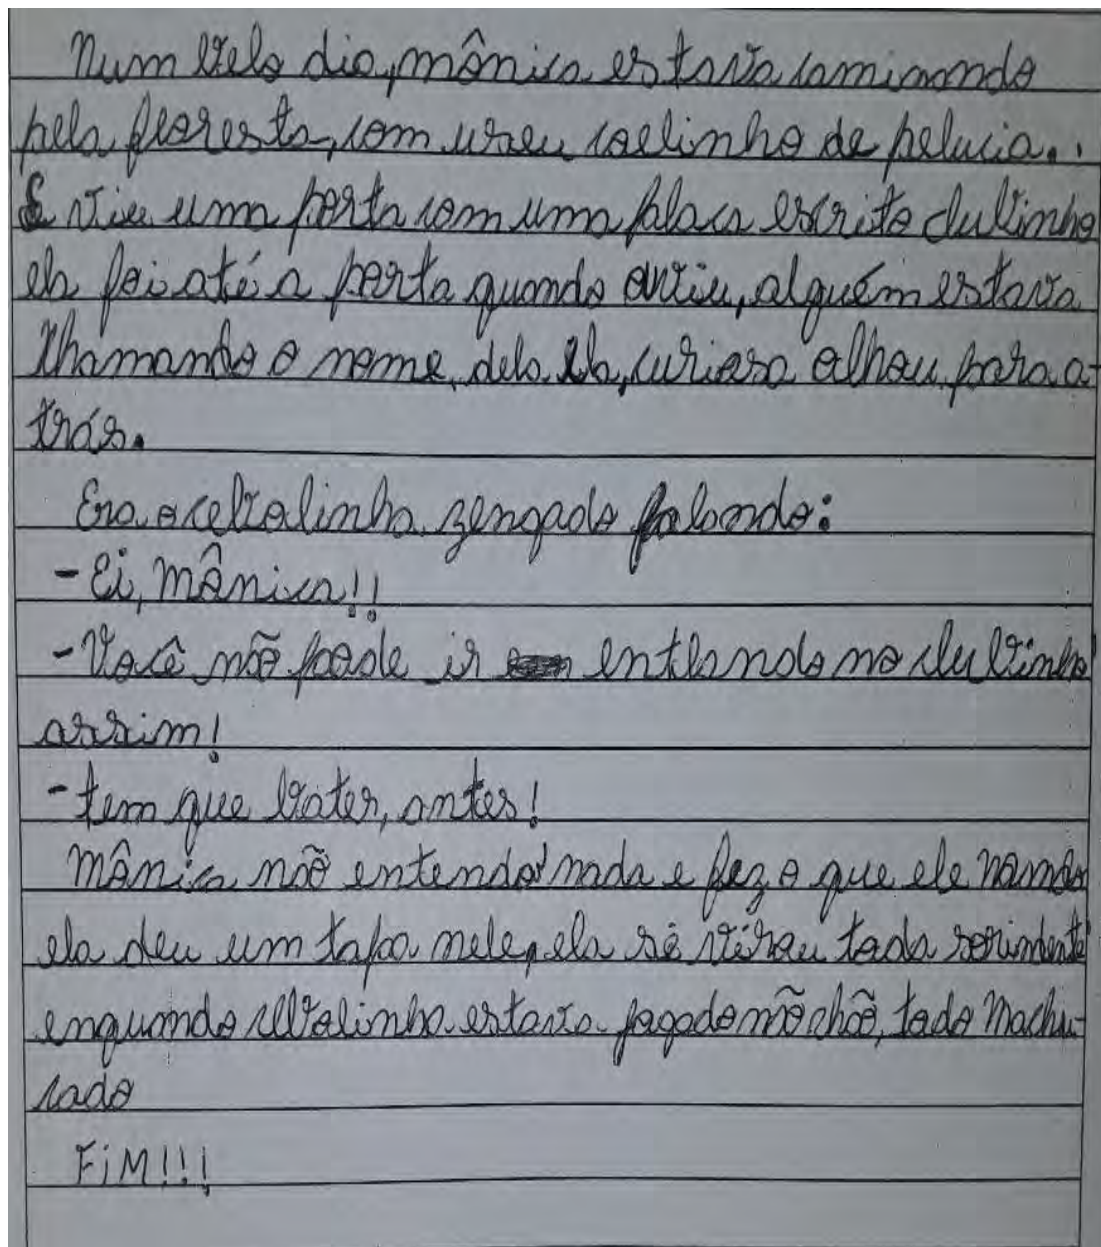 Num belo dia, mônica estava camimando
pela floresta, com useu coelinho de pelucia..
E viu uma porta com uma placa escrito clubinho
ela foi até a porta quando abriu, alguém estava
chamando o nome dela. Ela, curiosa olhou para a-
trás.
Era o cebolinha zengado falando:
- Ei, mônica!!
- Você não pode ir entlando no clubinho
assim!
- tem que bater, antes!
Mônica não entendo nada e fez o que ele
ela deu um tapa nele, ela sê virou toda sorindente
enquando cebolinha estava jogado não chão, todo Machu-
cado
FiM!!!